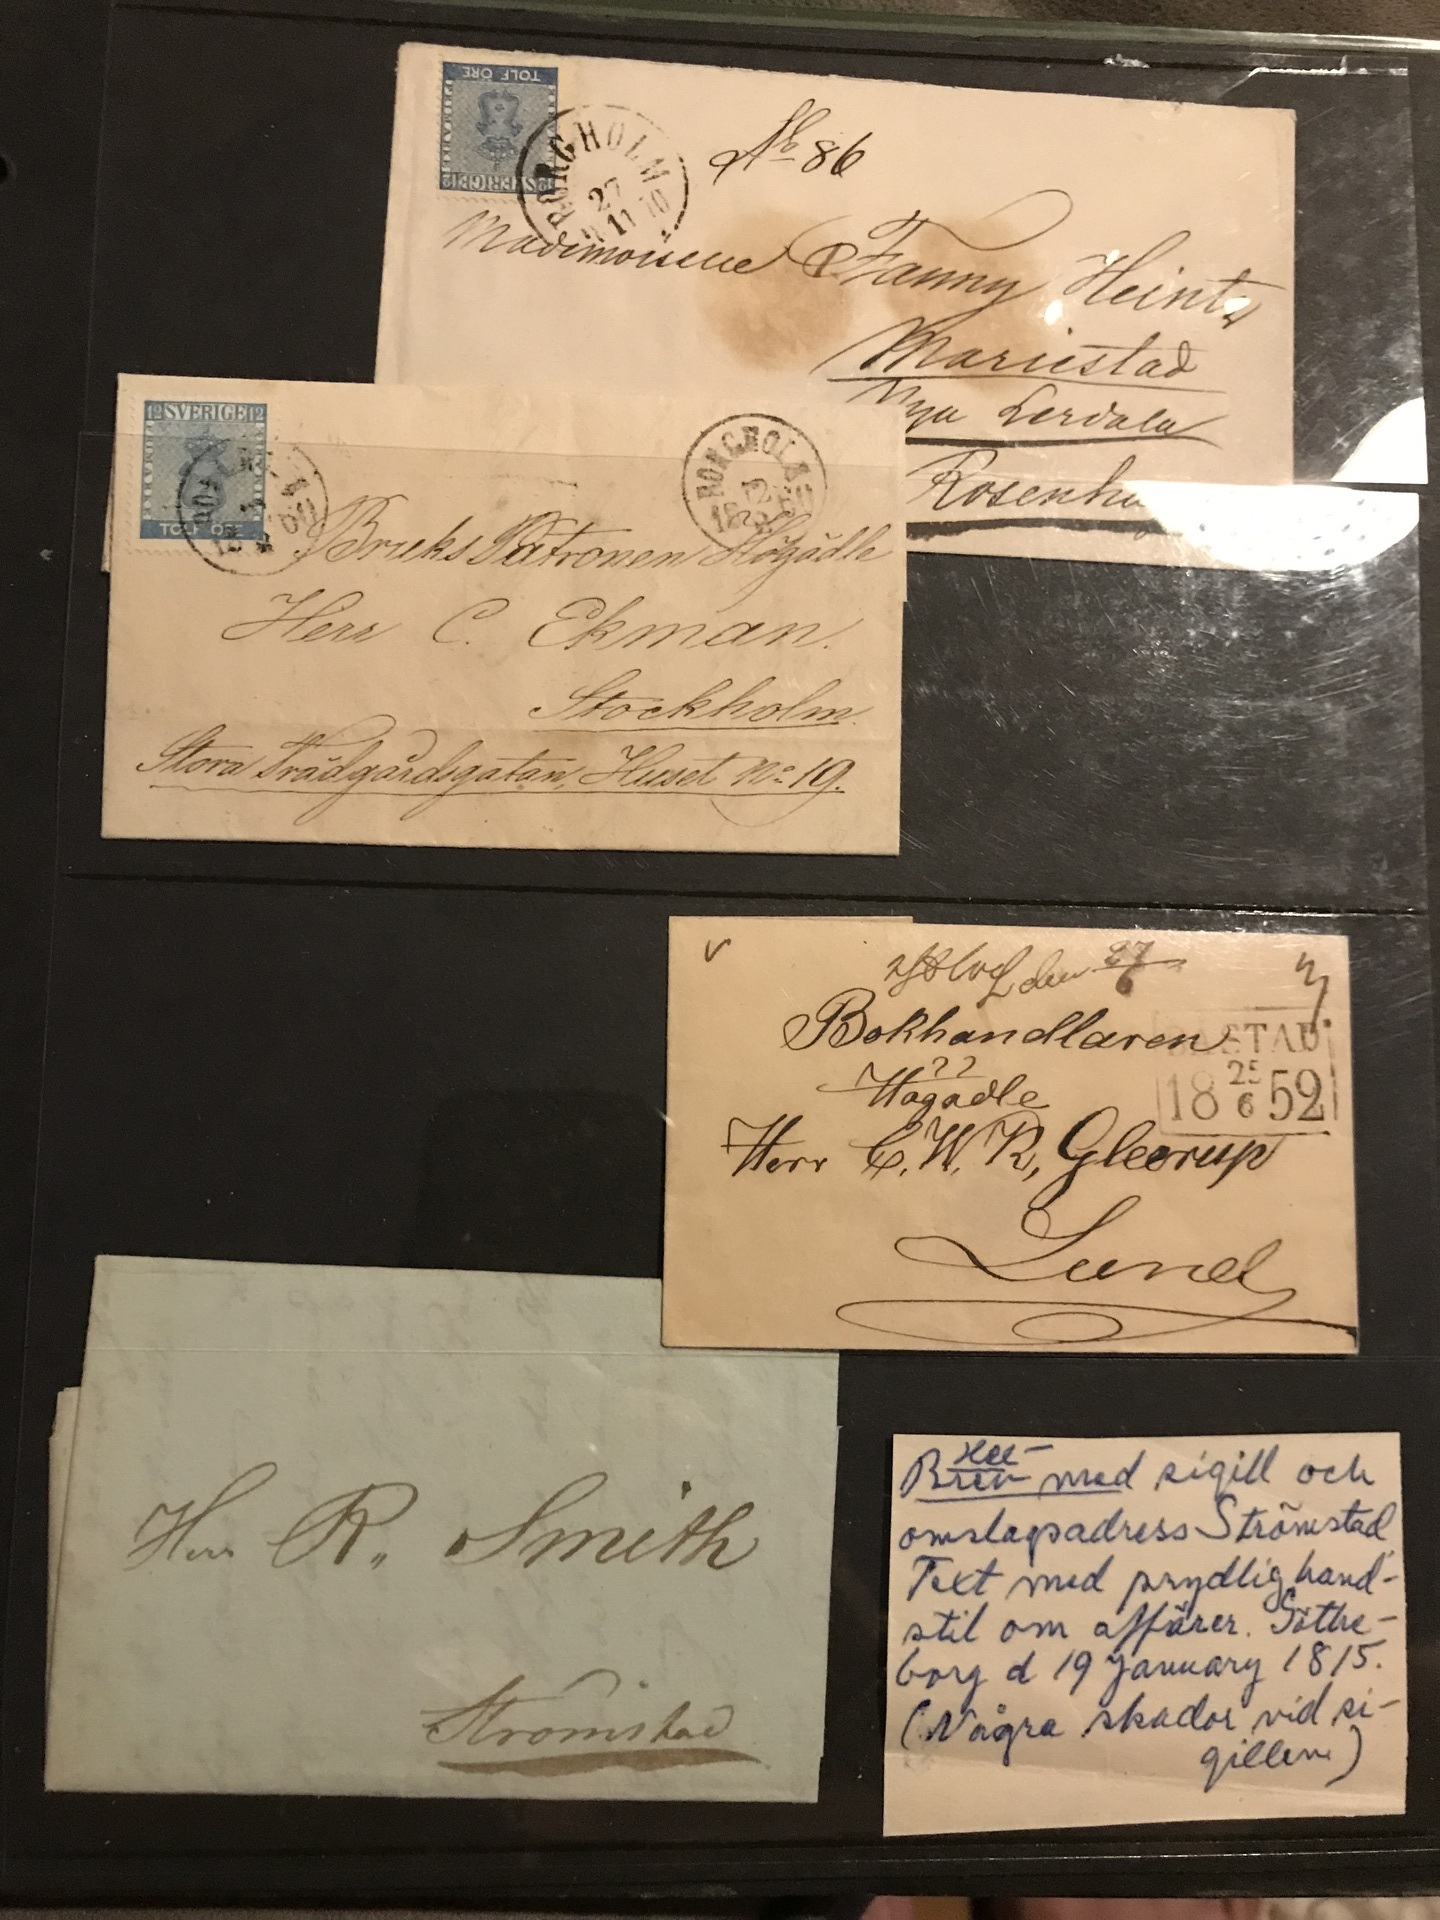 TOLF ÖRE
12 SVERIGE 12
BORGHOLM
27
11
No 86
Mademoiselle Fanny Heintz
Mariestad
Nya Lerdala
Rosenhu
12 SVERIGE 12
TOLF ÖRE
BORGHOLM
12
Bruks Patronen Högädle
Herr C. Ekman.
Stockholm.
Stora Trädgårdsgatan, Huset No 19.
den 27/6
Bokhandlaren
Högädle
BÅSTAD
18 25/6 52
Herr C. W. K. Gleerup
Lund
Herr R. Smith
Strömstad
Hel-
Brev med sigill och
omslagsadress Strömstad.
Text med prydlig hand-
stil om affärer. Göthe-
borg d 19 January 1815.
(Några skador vid si-
gillen)